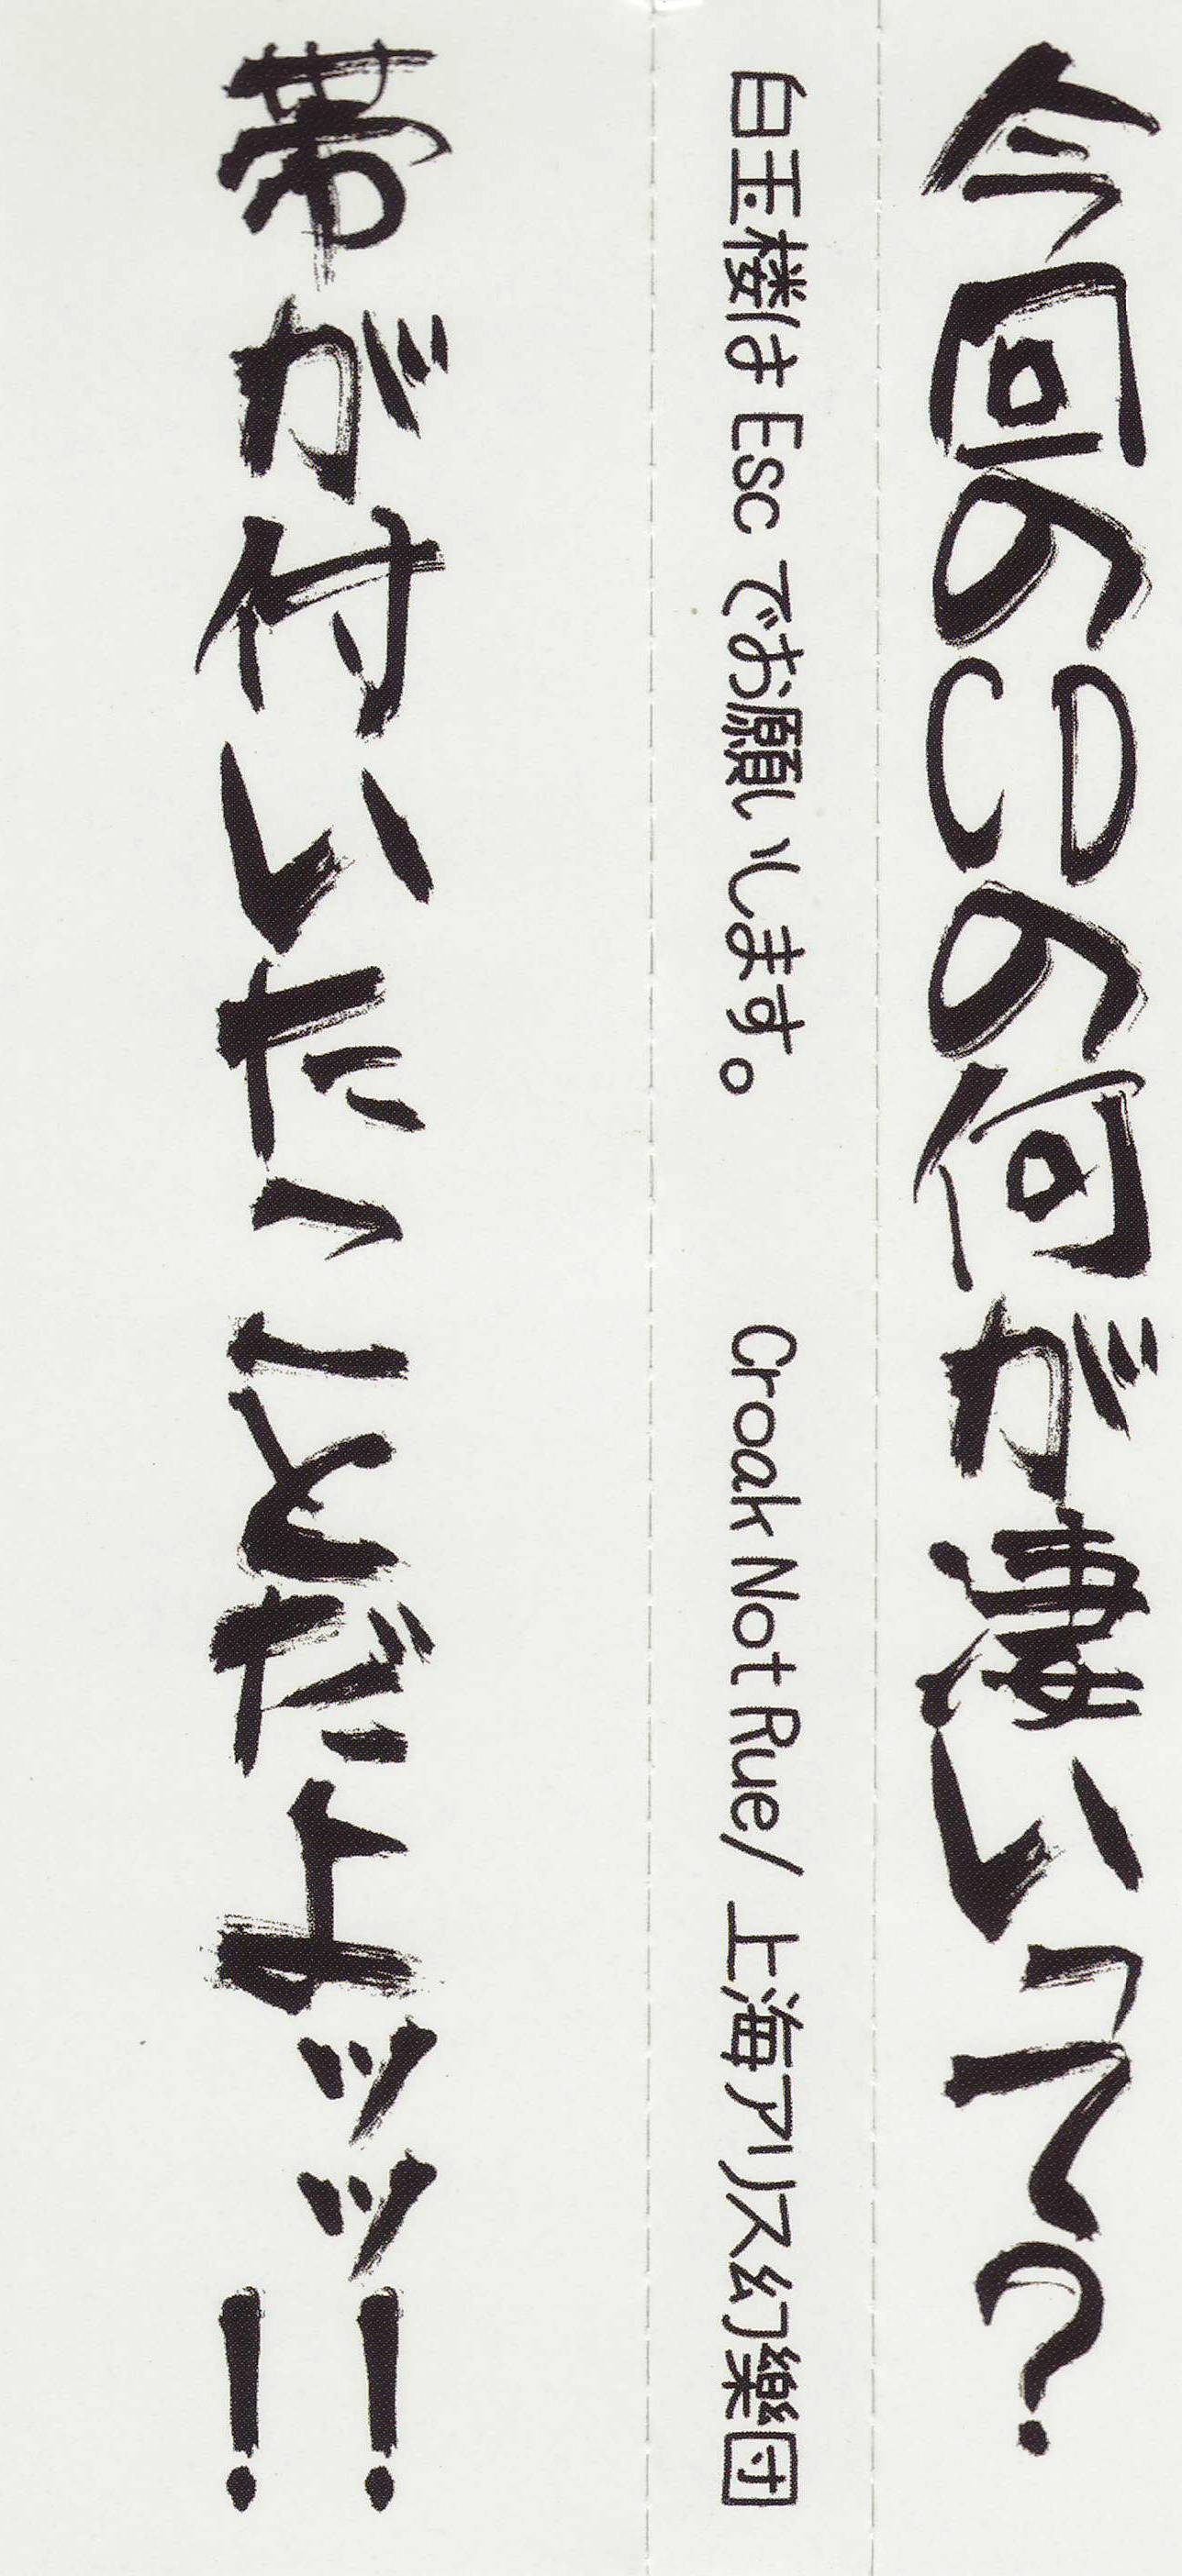 今回のCDの何が凄いって?
白玉楼は Esc でお願いします。 Croak Not Rue/ 上海アリス幻樂団
帯が付いたことだよッッ!!